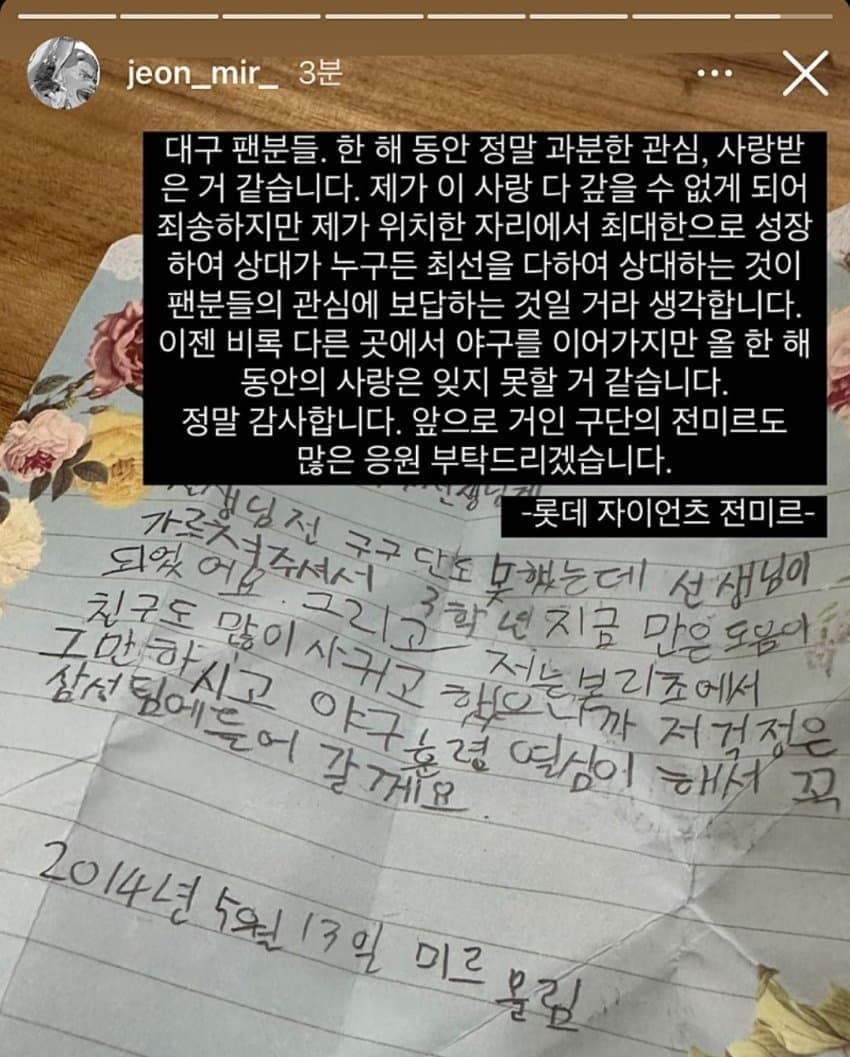 jeon_mir_ 3분
대구 팬분들. 한 해 동안 정말 과분한 관심, 사랑받
은 거 같습니다. 제가 이 사랑 다 갚을 수 없게 되어
죄송하지만 제가 위치한 자리에서 최대한으로 성장
하여 상대가 누구든 최선을 다하여 상대하는 것이
팬분들의 관심에 보답하는 것일 거라 생각합니다.
이젠 비록 다른 곳에서 야구를 이어가지만 올 한 해
동안의 사랑은 잊지 못할 거 같습니다.
정말 감사합니다. 앞으로 거인 구단의 전미르도
많은 응원 부탁드리겠습니다.
-롯데 자이언츠 전미르-
선생님전 구구단도 못했는데 선생님이
가르쳐주셔서 3학년 지금 만은 도움이
되었어요. 그리고 저는 본리초에서
친구도 많이 사귀고 했으니까 저 걱정은
그만하시고 야구훈령 열심이 해서 꼭
삼성팀에 들어 갈께요.
2014년 5월 13일 미르 올림